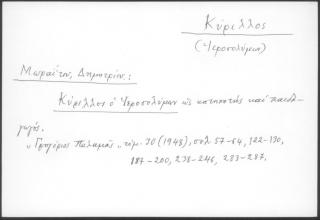 Κύριλλος
(Ἱεροσολύμων)
Μωραΐτου, Δημητρίου:
Κύριλλος ὁ Ἱεροσολύμων ὡς κατηχητὴς καὶ παιδα-
γωγός.
„Γρηγόριος Παλαμᾶς„ τόμ. 30 (1948), σελ 57-64, 122-130,
187-200, 238-246, 283-287.